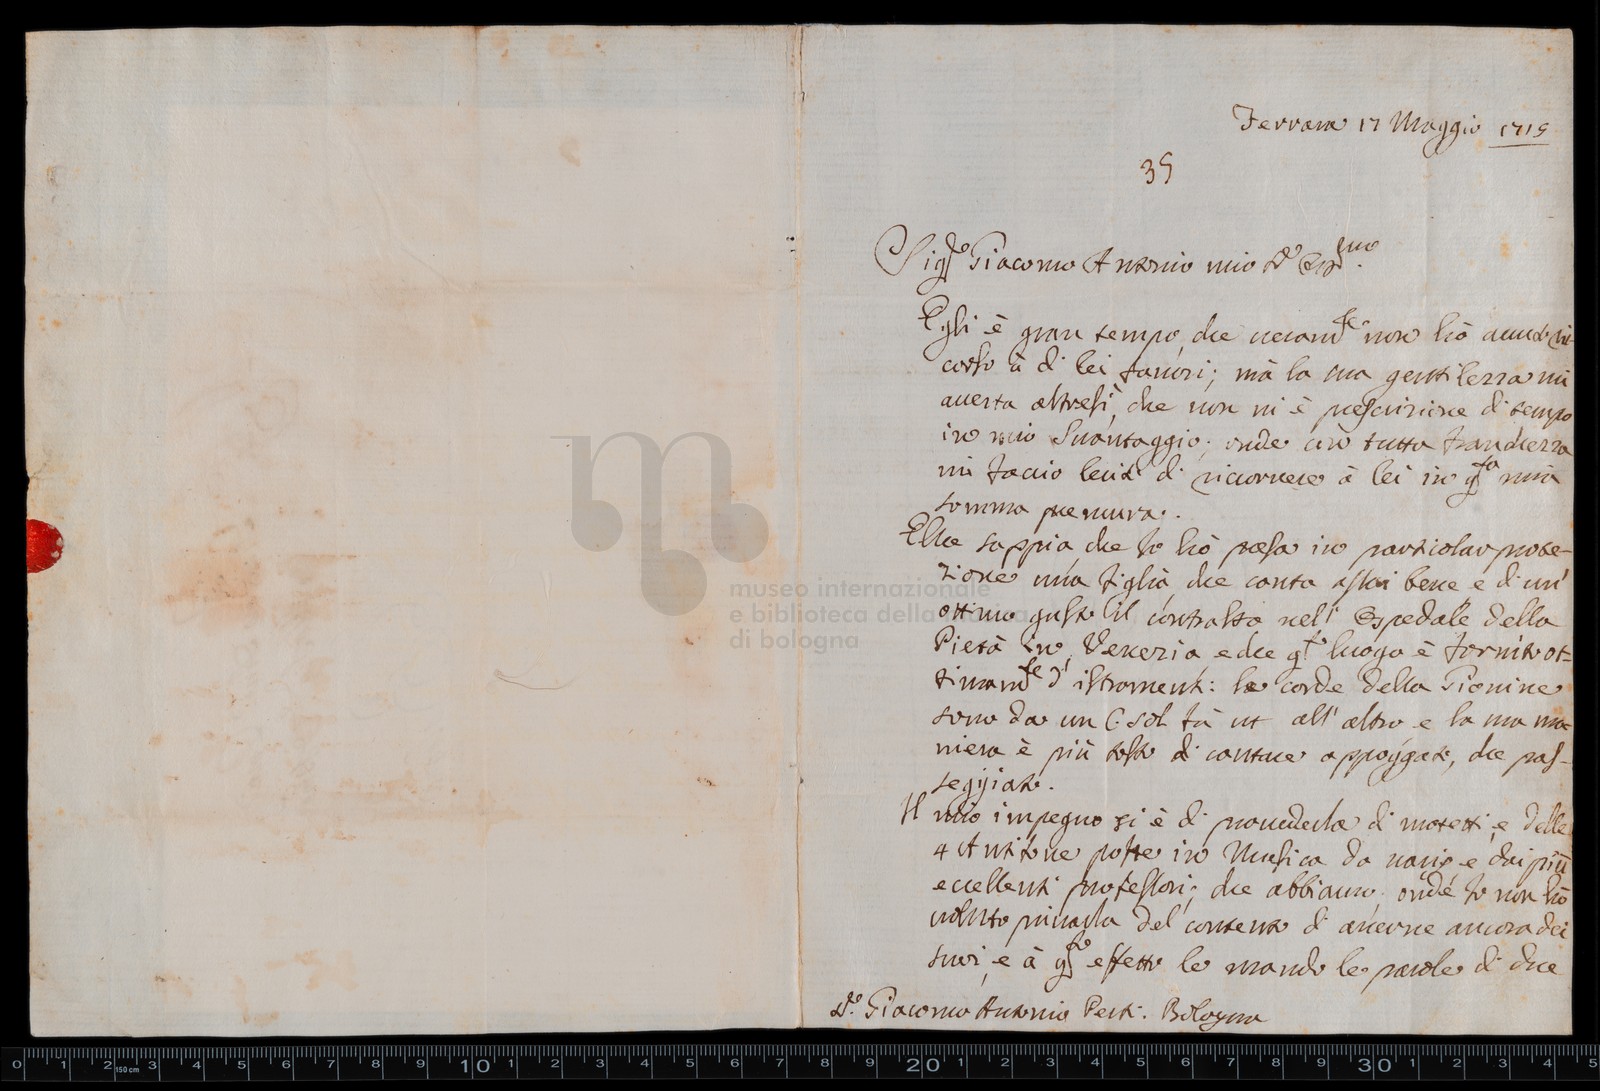 Ferrara 17 Maggio 1715
35
Sig.r Giacomo Antonio mio
Egli è gran tempo, che non hò auuto ri-
corso à di lei fauori; mà la sua gentilezza mi
auerta altresì, che non ui è prescrizione di tempo
in mio Suantaggio; onde con tutta franchezza
mi facio lecito di ricorrere à lei in q.ta mia
somma premura.
Ella sappia che Io hò presa in particolar prote-
zione una figlia, che canta assai bene, e di un'
ottimo gusto il contralto nell' Ospedale della
Pietà in Venezia, e che q.to luogo è fornito ot-
timam.te d'istromenti: le corde della Giouine
sono da un C. sol fà ut all' altro e la sua ma-
niera è più tosto di cantare appoggiato, che pas-
seggiato.
Il mio impegno si è di prouederla di motetti, e delle
4 Antifone poste in Musica da uarij e dai più
eccellenti professori, che abbiamo, onde Io non hò
uoluto priuarla del contento di auerne ancora dei
suoi, e à q.to effetto le mando le parole di due
S.r Giacomo Antonio Perti. Bologna
museo internazionale
e biblioteca della musica
di bologna
0 1 2 3 4 5 6 7 8 9 10 1 2 3 4 5 6 7 8 9 20 1 2 3 4 5 6 7 8 9 30 1 2 3 4 5
150 cm